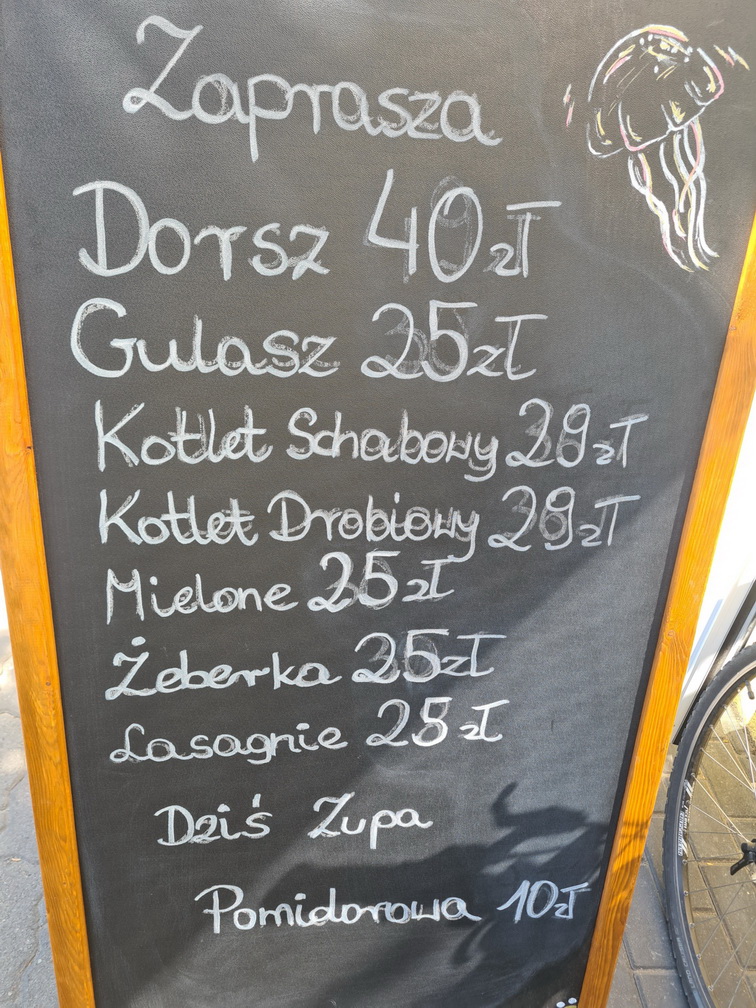 Zaprasza
Dorsz 40zł
Gulasz 25zł
Kotlet Schabowy 28zł
Kotlet Drobiowy 28zł
Mielone 25zł
Żeberka 25zł
Lasagnie 25zł
Dziś Zupa
Pomidorowa 10zł